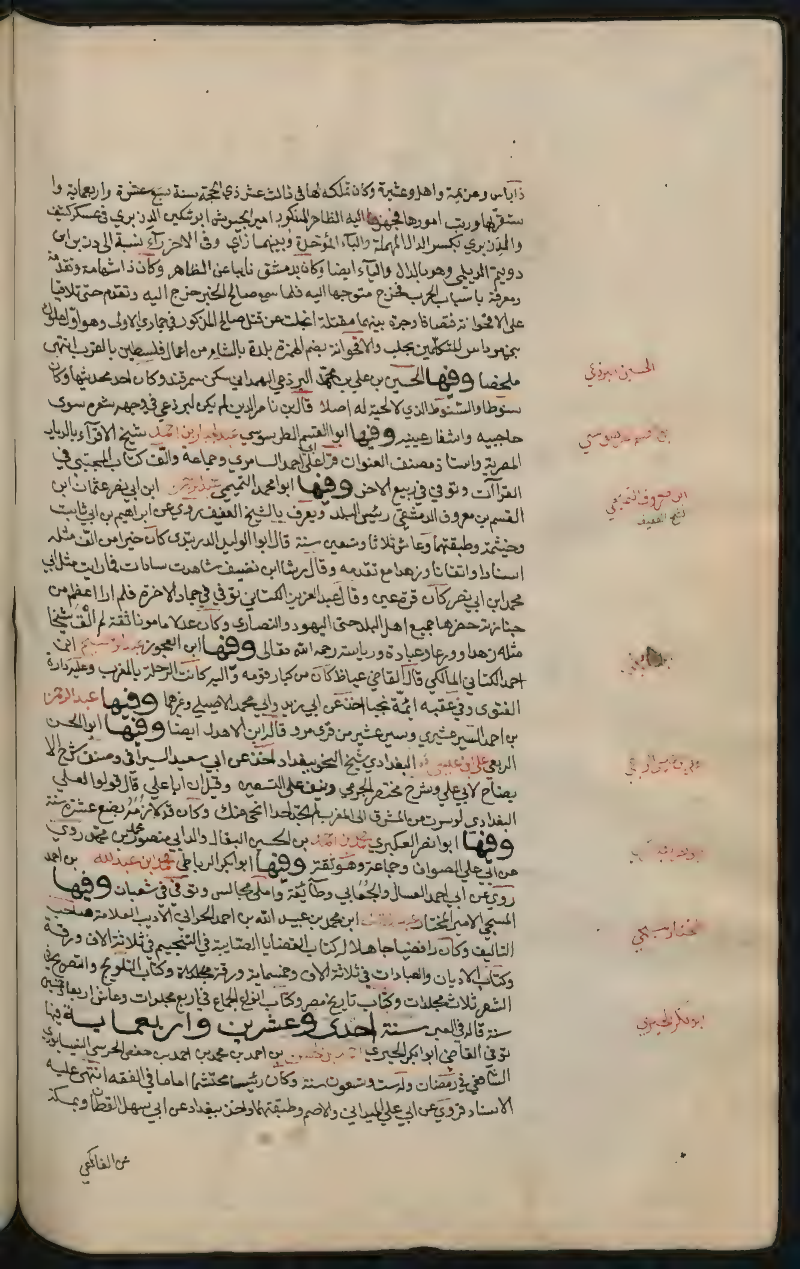 ذا باس وعزيمة واهل وعشيرة وكان تملكه لها في ثالث عشر ذي الحجة سنة سبع عشرة واربعماية وا
ستقر بها ورتب امورها فجهز اليه الظاهر المذكور امير الجيوش انوشتكين الدزبري في عسكر كثيف
والدزبري بكسر الدال المهملة والباء الموحدة وبينهما زاي وفي الاخر راء نسبة الى دزبر بن
دويتم الديلمي وهو بالدال والباء ايضا وكان بدمشق نايبا عن الظاهر وكان ذا شهامة وتقدمة
ومعرفة باسباب الحرب فخرج متوجها اليه فلما سمع صالح الخبر خرج اليه وتقدم حتى تلاقيا
على الاقحوانة فتصافا وجرت بينهما مقتلة انجلت عن قتل صالح المذكور في جمادي الاولى وهو اول ملوك
بني مرداس المتملكين بحلب والاقحوانة بضم الهمزة بلدة بالشام من اعمال فلسطين بالقرب انتهى
ملخصا وفيها الحسين بن علي بن محمد البرذعي الهمداني سكن سمرقند وكان احد محدثيها وكان
سنوطا والسنوط الذي لا لحية له اصلا قال ابن ناصر الدين لم يكن للبرذعي في وجهه شعر سوى
حاجبيه واشفار عينيه وفيها ابو القسم الطرسوسي عبد الجبار بن احمد شيخ الاقراء بالديار
المصرية واستاذ مصنف العنوان قرا على ابي احمد السامري وجماعة والف كتاب المجتبى في
القراآت وتوفي في ربيع الاخر وفيها ابو محمد التميمي عبد الرحمن ابن ابي نصر عثمان ابن
القسم بن معروف الدمشقي رئيس البلد ويعرف بالشيخ العفيف يروي عن ابراهيم بن ابي ثابت
وخيثمة وطبقتهما وعاش ثلاثا وتسعين سنة قال ابو الوليد الدربندي كان خيرا من الف مثله
اسنادا واتقانا وزهدا مع تقدمه وقال رشا ابن نضيف شاهدت سادات فما رايت مثل ابي
محمد ابن ابي نصر كان قرة عين وقال عبد العزيز الكتاني توفي في جماد الاخرة فلم ار اعظم من
جنازته حضرها جميع اهل البلد حتى اليهود والنصارى وكان عدلا مامونا ثقة لم الق شيخا
مثله زهدا وورعا وعبادة ورياسة رحمه الله تعالى وفيها ابن العجوز عبد الرحيم ابن
احمد الكتاني المالكي قال القاضي عياض كان من كبار قومه واليه كانت الرحلة بالمغرب وعليه دارة
الفتوى وفي عقبه ائمة نجبا اخذ عن ابي زيد وابي محمد الاصيلي وغيرهما وفيها عبد الرحمن
بن احمد الشيرعشيري وسيرعشير من قرى مرو قاله ابن الاهدل ايضا وفيها ابو الحسن
الربعي علي بن عيسى البغدادي شيخ النحو ببغداد اخذ عن ابي سعيد السيرافي وصنف شرح الا
يضاح لابي علي وشرح مختصر الجرمي ونيف على التسعين وقيل ان ابا علي قال قولوا لعلي
البغدادي لو سرت من المشرق الى المغرب لم تجد احدا انحى منك وكان قد لازمه بضع عشرة سنة
وفيها ابو نصر العكبري محمد بن احمد بن الحسين البقال والد ابي منصور محمد بن محمد روى
عن ابي علي الصواف وجماعة وهو ثقة وفيها ابو بكر الرباطي محمد بن عبد الله بن احمد
روى عن ابي احمد العسال والجعابي وطائفة واملى مجالس وتوفي في شعبان وفيها
المسبحي الامير المختار ابن محمد بن عبيد الله بن احمد الحراني الاديب العلامة صاحب
التاليف وكان رافضيا جاهلا له كتاب القضايا الصايبة في التنجيم في ثلاثة الاف ورقة
وكتاب الاديان والعبادات في ثلاثة الاف وخمسماية ورقة مجلدة وكتاب التلويح والتصريح في
الشعر ثلاث مجلدات وكتاب تاريخ مصر وكتاب انواع الجماع في اربع مجلدات وعاش اربعا وخمسين
سنة قاله في العبر سنة احدى وعشرين واربعماية فيها
توفي القاضي ابو بكر الحيري احمد بن الحسن بن احمد بن محمد بن احمد بن حفص الحرشي النيسابوري
الشافعي في رمضان وله ست وتسعون سنة وكان رئيسا محتشما اماما في الفقه انتهى عليه
الاسناد فروي عن ابي علي الميداني والاصم وطبقتهما واخذ ببغداد عن ابي سهل القطان وبمكة
عن الفاكهي
الحسين البرذعي
ابن معروف التميمي
الشيخ العفيف
علي بن عيسى الربعي
المختار المسبحي
ابو بكر الحيري